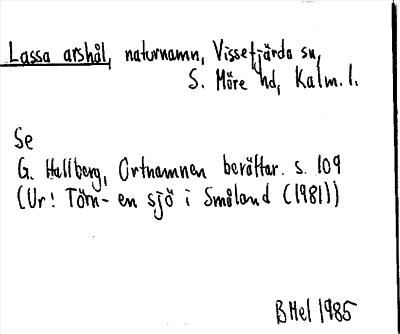 Lassa arshål, naturnamn, Vissefjärda sn,
S. Möre hd, Kalm. l.
Se
G. Hallberg, Ortnamnen berättar. s. 109
(Ur: Törn- en sjö i Småland (1981))
BHel 1985